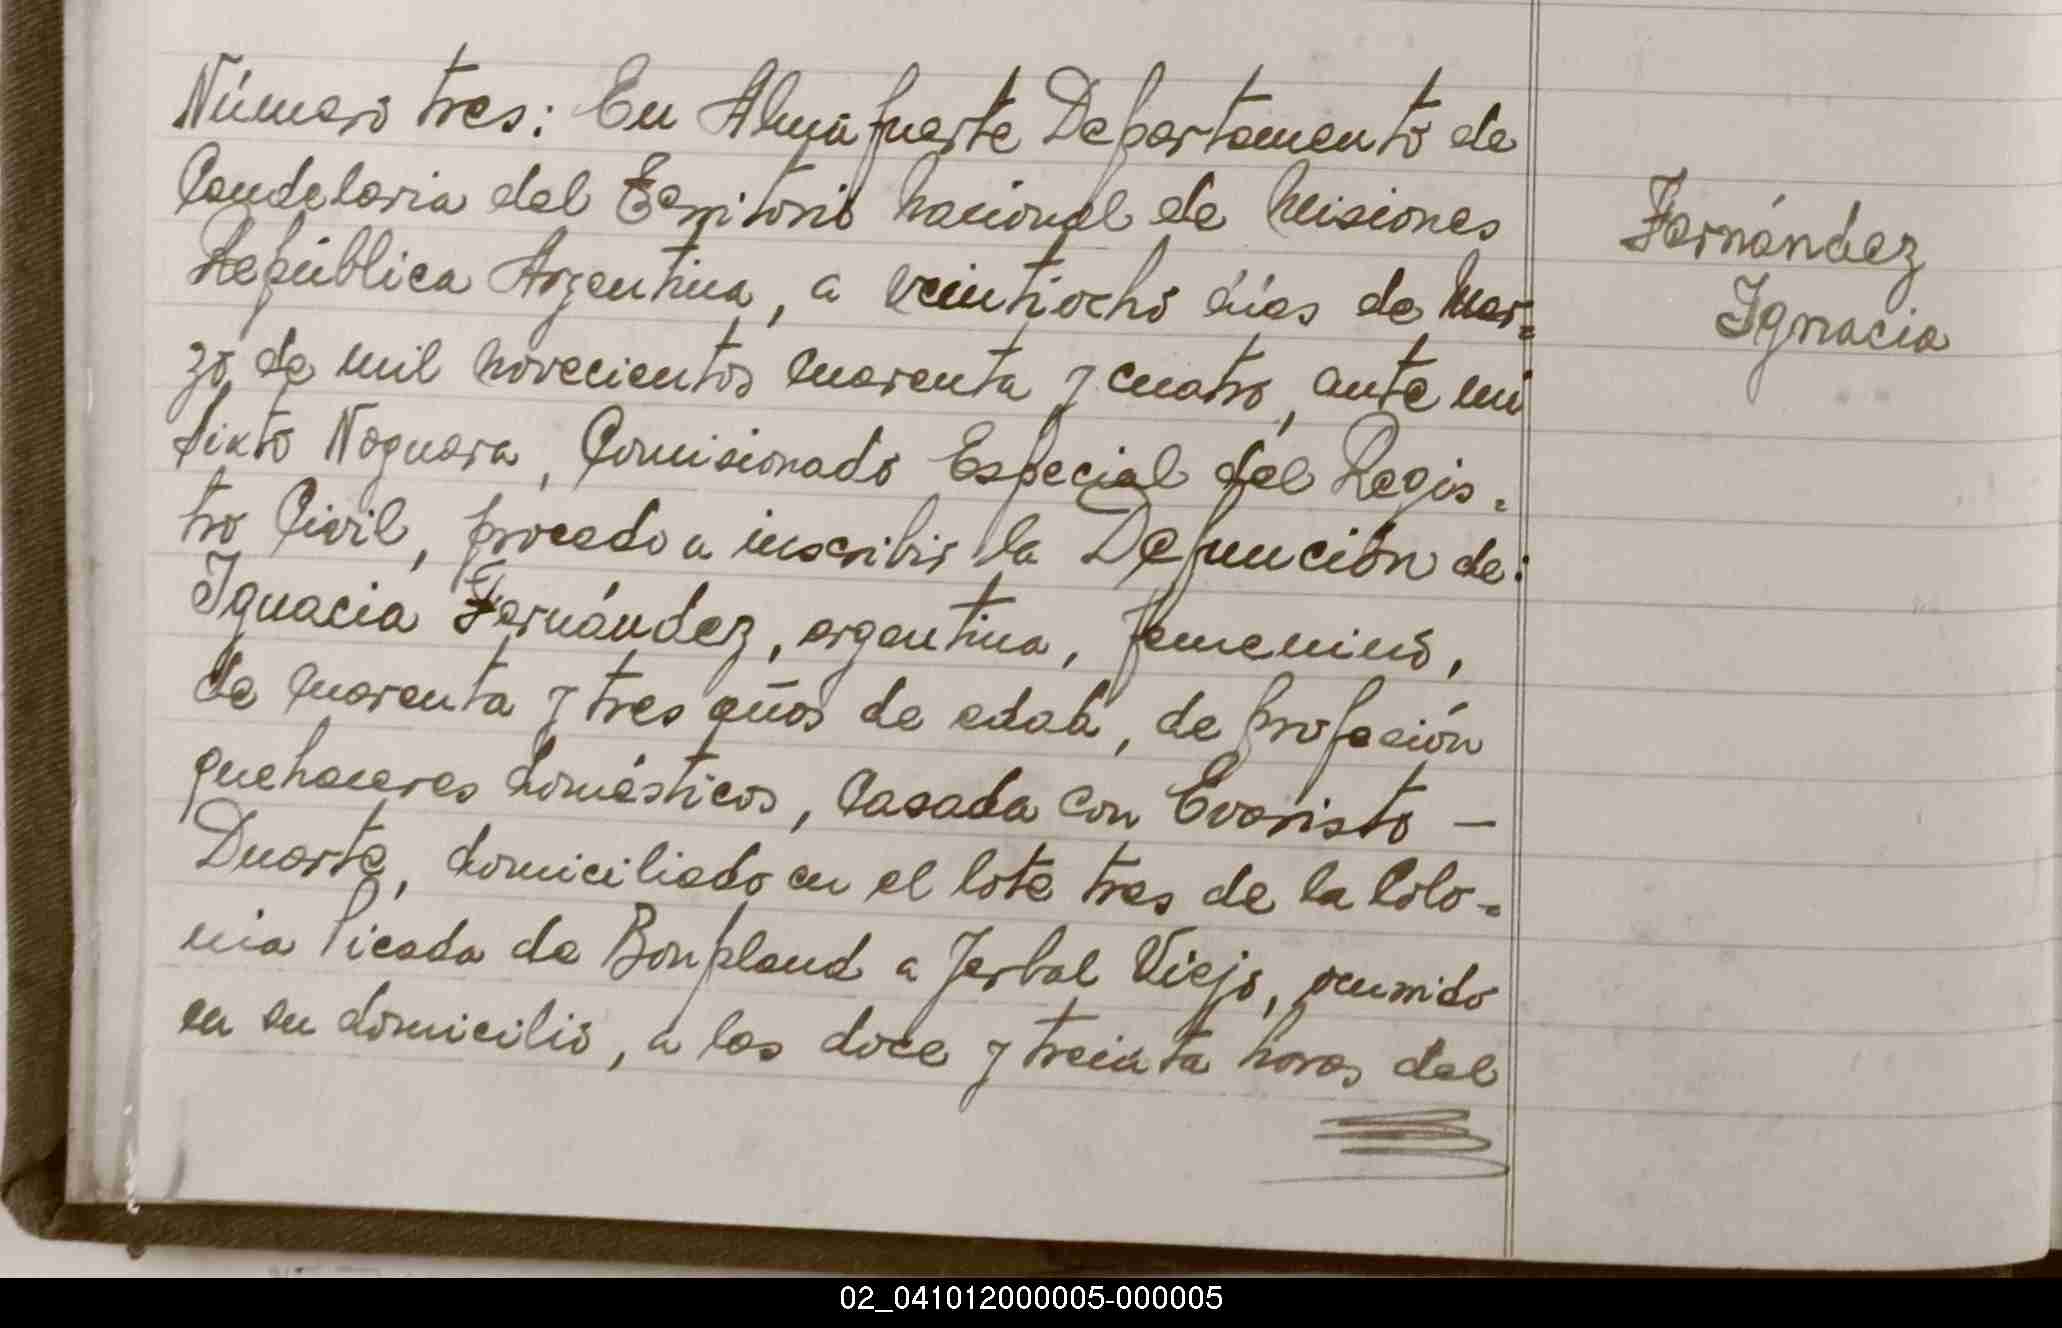 Número tres: En Almafuerte Departamento de
Candelaria del Territorio Nacional de Misiones
República Argentina, a veintiocho días de Mar=
zo de mil novecientos cuarenta y cuatro, ante mi
Sixto Noguera, Comisionado Especial del Regis=
tro Civil, procedo a inscribir la Defunción de:
Ignacia Fernández, argentina, femenino,
de cuarenta y tres años de edad, de profesión
quehaceres domésticos, casada con Evaristo —
Duarte, domiciliado en el lote tres de la Colo=
nia Picada de Bonpland a Yerbal Viejo, ocurrido
en su domicilio, a las doce y treinta horas del
Fernández
Ignacia
02_041012000005-000005